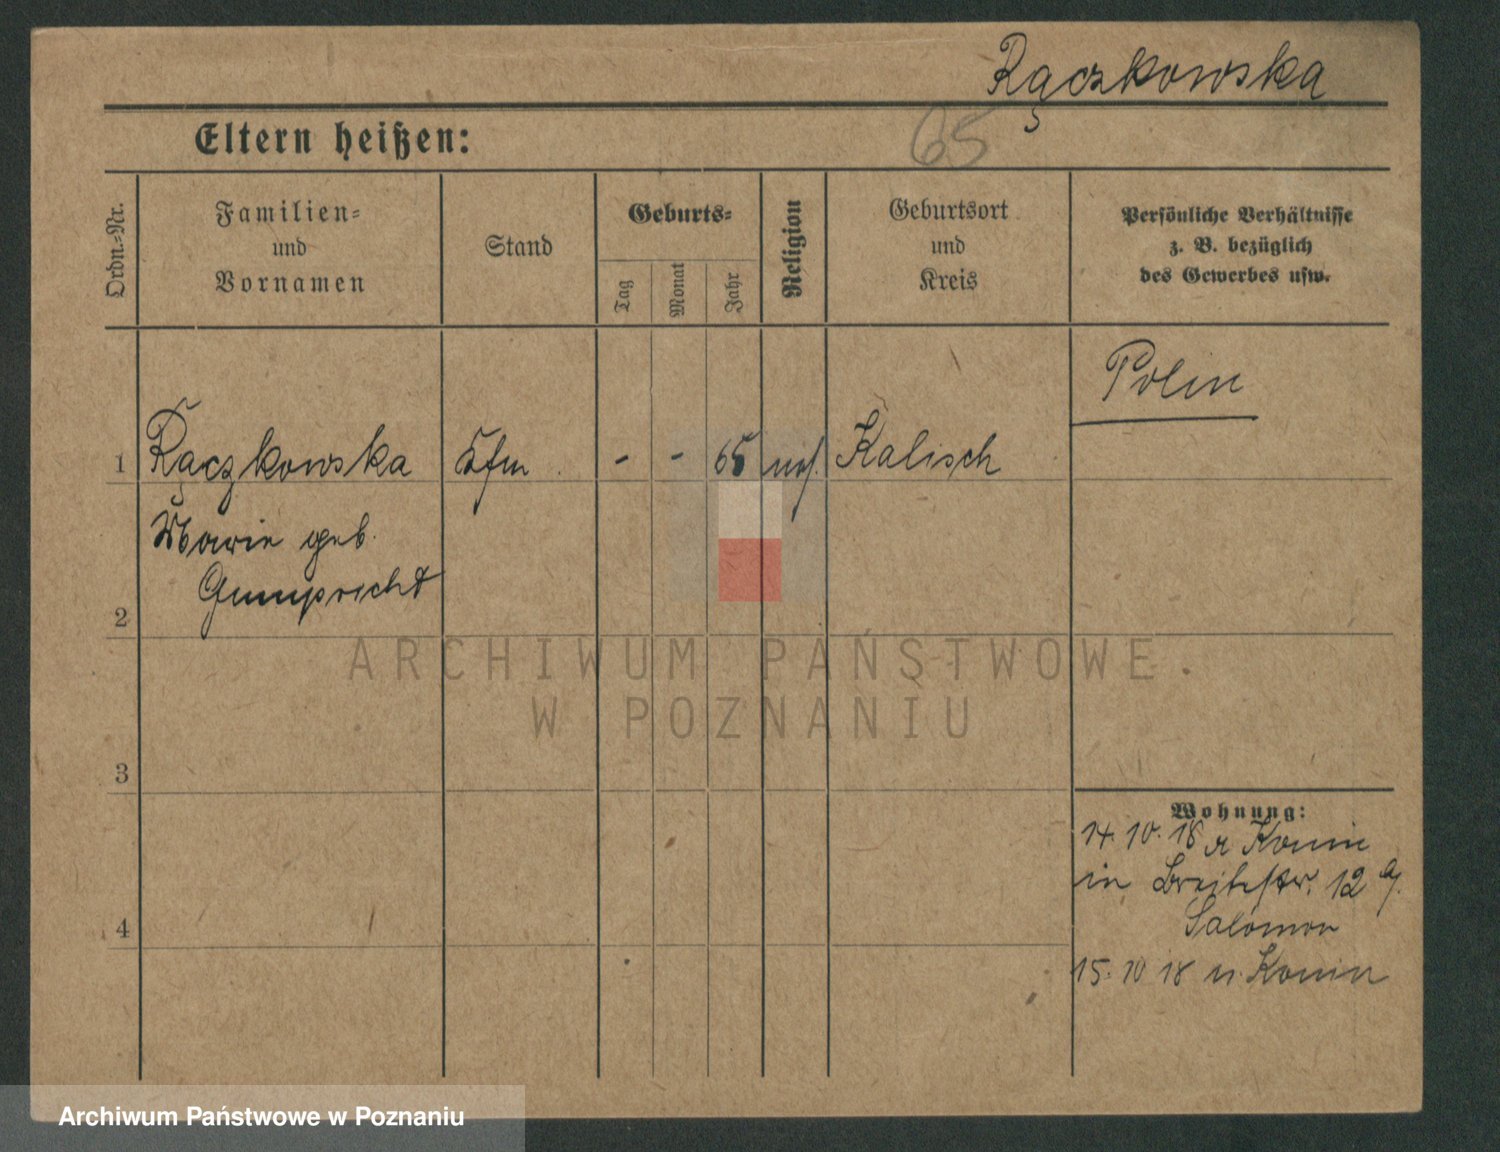 Rączkowska
Eltern heißen:
65
Ordn.-Nr.
Familien-
und
Vornamen
Stand
Geburts-
Tag
Monat
Jahr
Religion
Geburtsort
und
Kreis
Persönliche Verhältnisse
z. B. bezüglich
des Gewerbes usw.
Polin
1 Rączkowska - - 65 Kalisch
Marie geb.
Gumpricht
2
ARCHIWUM PAŃSTWOWE
W POZNANIU
3
Wohnung:
14.10.18 Konin
in Breitestr. 12
Salomon
4
15.10 18 n. Konin
Archiwum Państwowe w Poznaniu